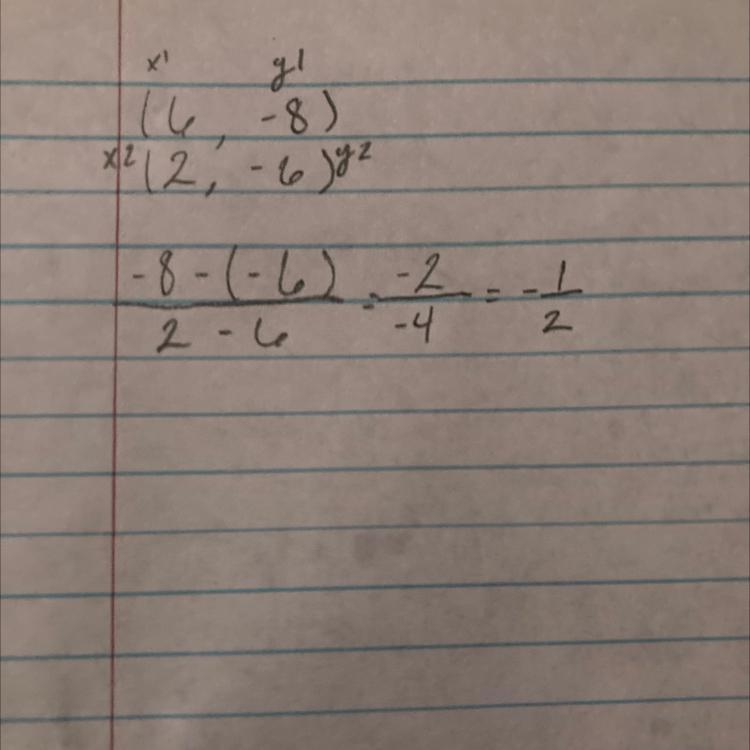 x1 y1
(6, -8)
x2 (2, -6) y2
-8-(-6) / 2-6 = -2 / -4 = -1/2